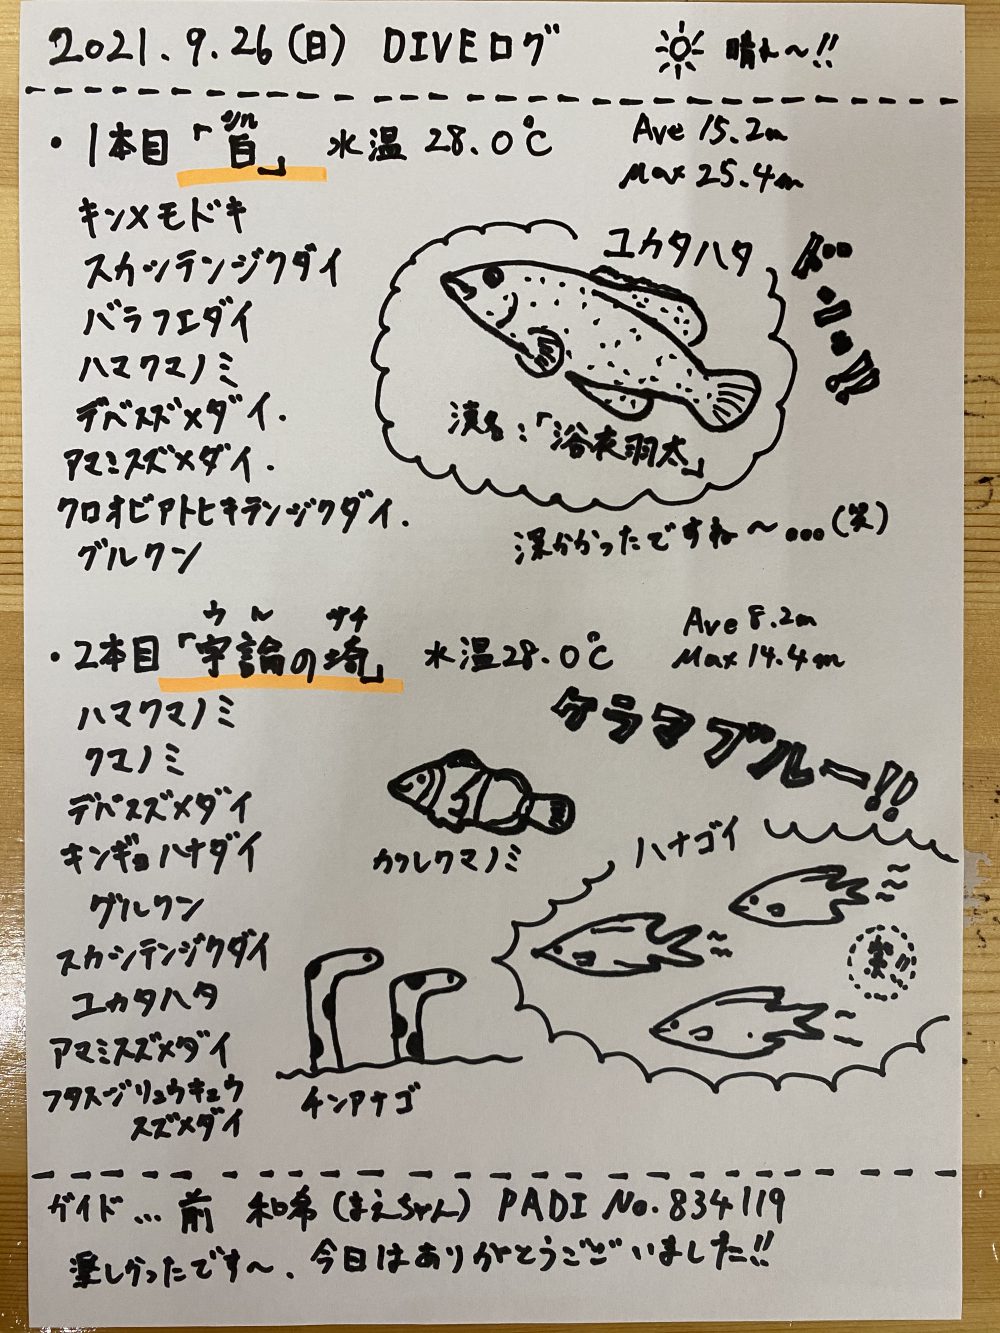 2021.9.26(日) DIVEログ 晴れ〜!!
・1本目「白」 水温 28.0℃ Ave 15.2m
Max 25.4m
キンメモドキ
スカシテンジクダイ
バラフエダイ
ハマクマノミ
デバスズメダイ.
アマミスズメダイ.
クロオビアトヒキテンジクダイ.
グルクン
ユカタハタ
ドーン!!
演名:「浴衣羽太」
深かかったですね〜...(笑)
ウル ザチ
・2本目「宇論の埼」 水温28.0℃ Ave 8.2m
Max 14.4m
ハマクマノミ
クマノミ
デバスズメダイ
キンギョハナダイ
グルクン
スカシテンジクダイ
ユカタハタ
アマミスズメダイ
フタスジリュウキュウ
スズメダイ
ケラマブルー!!
カクレクマノミ
ハナゴイ
チンアナゴ
ガイド... 前 和希(まえちゃん) PADI No.834119
楽しかったです〜、今日はありがとうございました!!